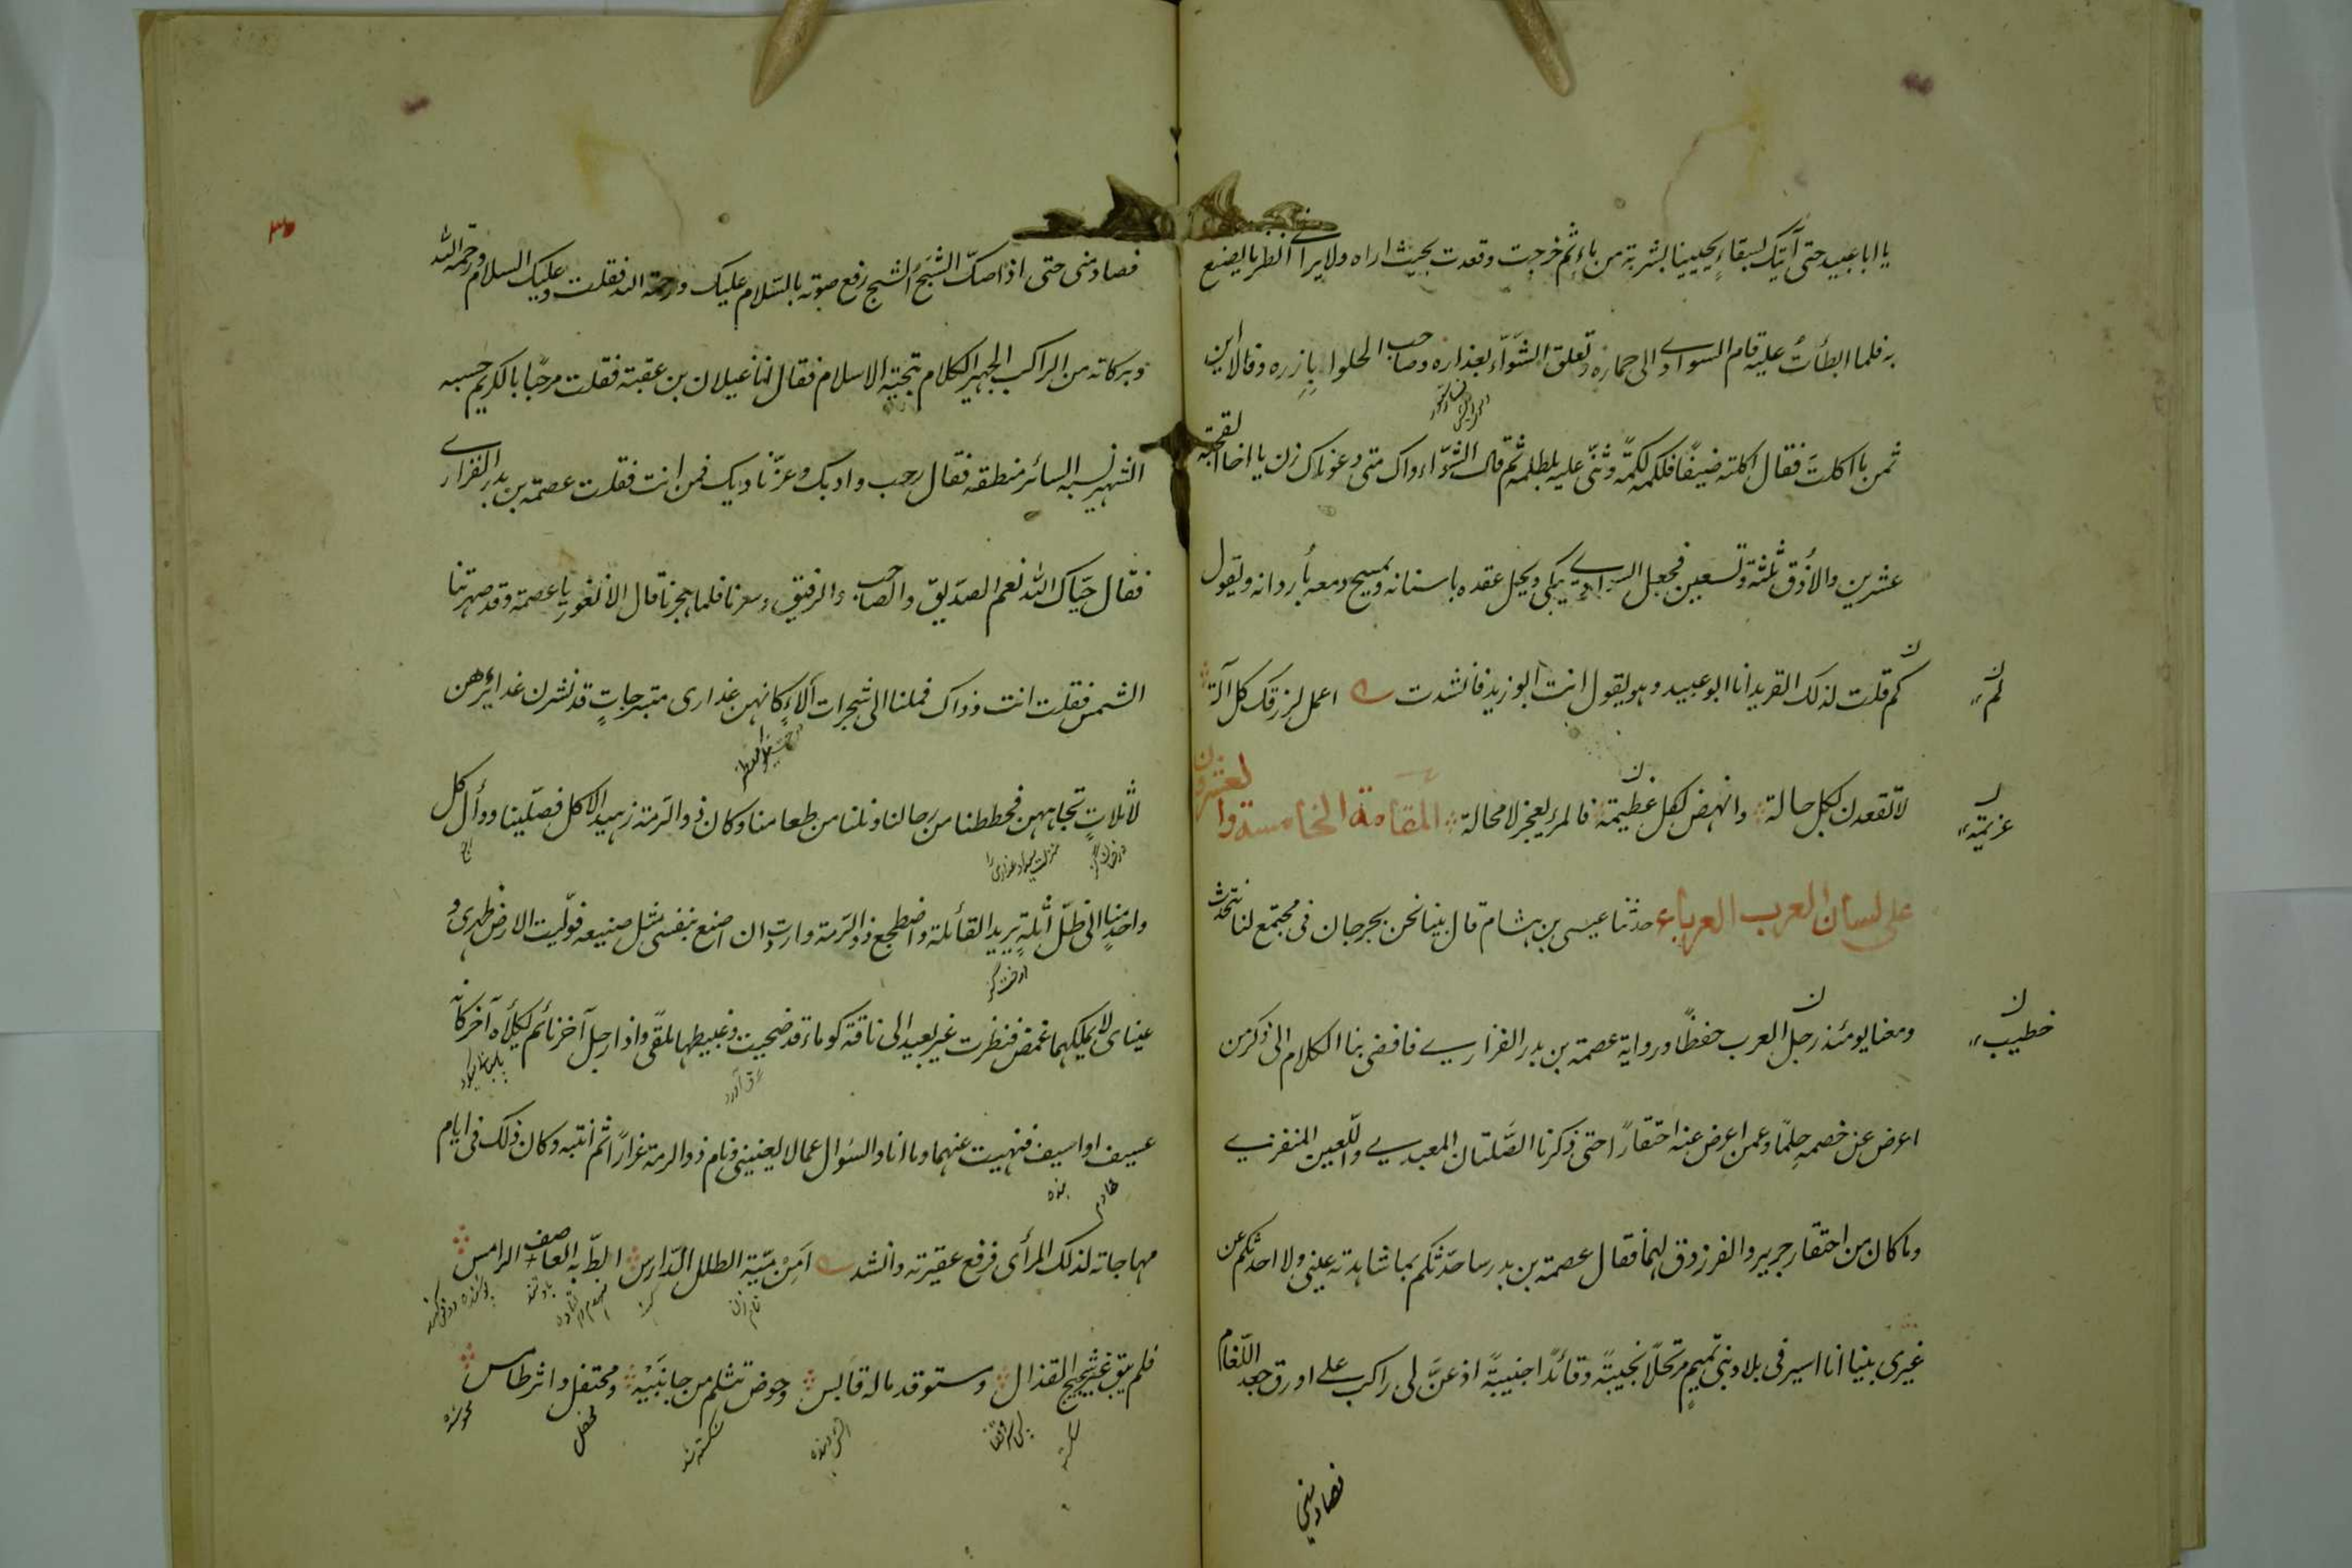 يا ابا عبيد حتى آتيك بسقاءٍ يحيينا بشربة من ماءٍ ثم خرجت وقعدت بحيث اراه ولا يراني انظر ما يصنع
به فلما ابطأتُ عليه قام السوادي الى حماره وتعلق الشوّاء بعذاره وصاحب الحلوا بازره وقالا اين
ثمن ما اكلتَ فقال اكلته ضيفًا فلكمه لكمةً وثنّى عليه بلطمة ثم قال الشوّاء هاك متى دعوناك زن يا اخا القحبة
عشرين والا ذق ثلثة وتسعين فجعل السوادي يبكي ويحل عقده باسنانه ويمسح دمعه باردانه ويقول
كم قلت لذلك القريد انا ابو عبيد وهو يقول انت ابو زيد فانشدت اعمل لرزقك كل آلة
لا تقعدن لكل حالة وانهض لكل عظيمة فالمرء يعجز لا محالة المقامة الخامسة والعشرون
على لسان العرب العرباء حدثنا عيسى بن هشام قال بينا نحن بجرجان في مجتمع لنا نتحدث
ومعنا يومئذ رجل العرب حفظًا ورواية عصمة بن بدر الفزاري فافضى بنا الكلام الى ذكر من
اعرض عن خصمه حلمًا وعمن اعرض عنه احتقارًا حتى ذكرنا الصَّلتان العبدي واللعين المنقري
وما كان من احتقار جرير والفرزدق لهما فقال عصمة بن بدر ساحدّثكم بما شاهدته عيني ولا احدثكم عن
غيري بينا انا اسير في بلاد بني تميمٍ مرتحلًا نجيبةً وقائدًا جنيبةً اذ عنَّ لي راكب على اورق جعد اللغام
فصادمني
كم
عزيمة
خطيب
٣٥
فصادمني حتى اذا صكّ الشبحُ الشبح رفع صوته بالسّلام عليك ورحمة الله فقلت وعليك السلام ورحمة الله
وبركاته من الراكب الجهير الكلام بتحية الاسلام فقال انا غيلان بن عقبة فقلت مرحبًا بالكريم حسبه
الشهير نسبه السائر منطقه فقال رحب واديك وعزّ ناديك فمن انت فقلت عصمة بن بدر الفزاري
فقال حيّاك الله نعم الصدّيق والصاحب والرفيق وسرنا فلما هجرنا قال الا نغور يا عصمة وقد صهرتنا
الشمس فقلت انت وذاك فملنا الى شجرات ألاءٍ كانهن عذارى متبرجاتٍ قد نشرن غدائرهن
لاثلاتٍ تجاههن فحططنا من رحالنا ونلنا من طعامنا وكان ذو الرّمة زهيد الاكل فصلّينا ووأل كل
واحدٍ منا الى ظلّ أثلةٍ يريد القائلة واضطجع ذو الرّمة واردت ان اصنع بنفسي مثل صنيعه فوّليت الارض ظهري و
عيناى لا يملكهما غمض فنظرت غير بعيد الى ناقة كوماء قد ضحيت وغبيطها ملقّى واذا رجل آخر نائم يكلأه آخر كانه
عسيف او اسيف فنهيت عنهما وما انا والسؤال عما لا يعنيني ونام ذو الرمة غرارًا ثم انتبه وكان ذلك في ايام
مهاجاته لذلك المرأى فرفع عقيرته وانشد أمن ميّة الطلل الدّارس الظّ به العاصف الرامس
فلم يبق غير شجيج القذال ومستوقد ماله قابس وحوض تثلم من جانبيه ومحتفل داثر طامس